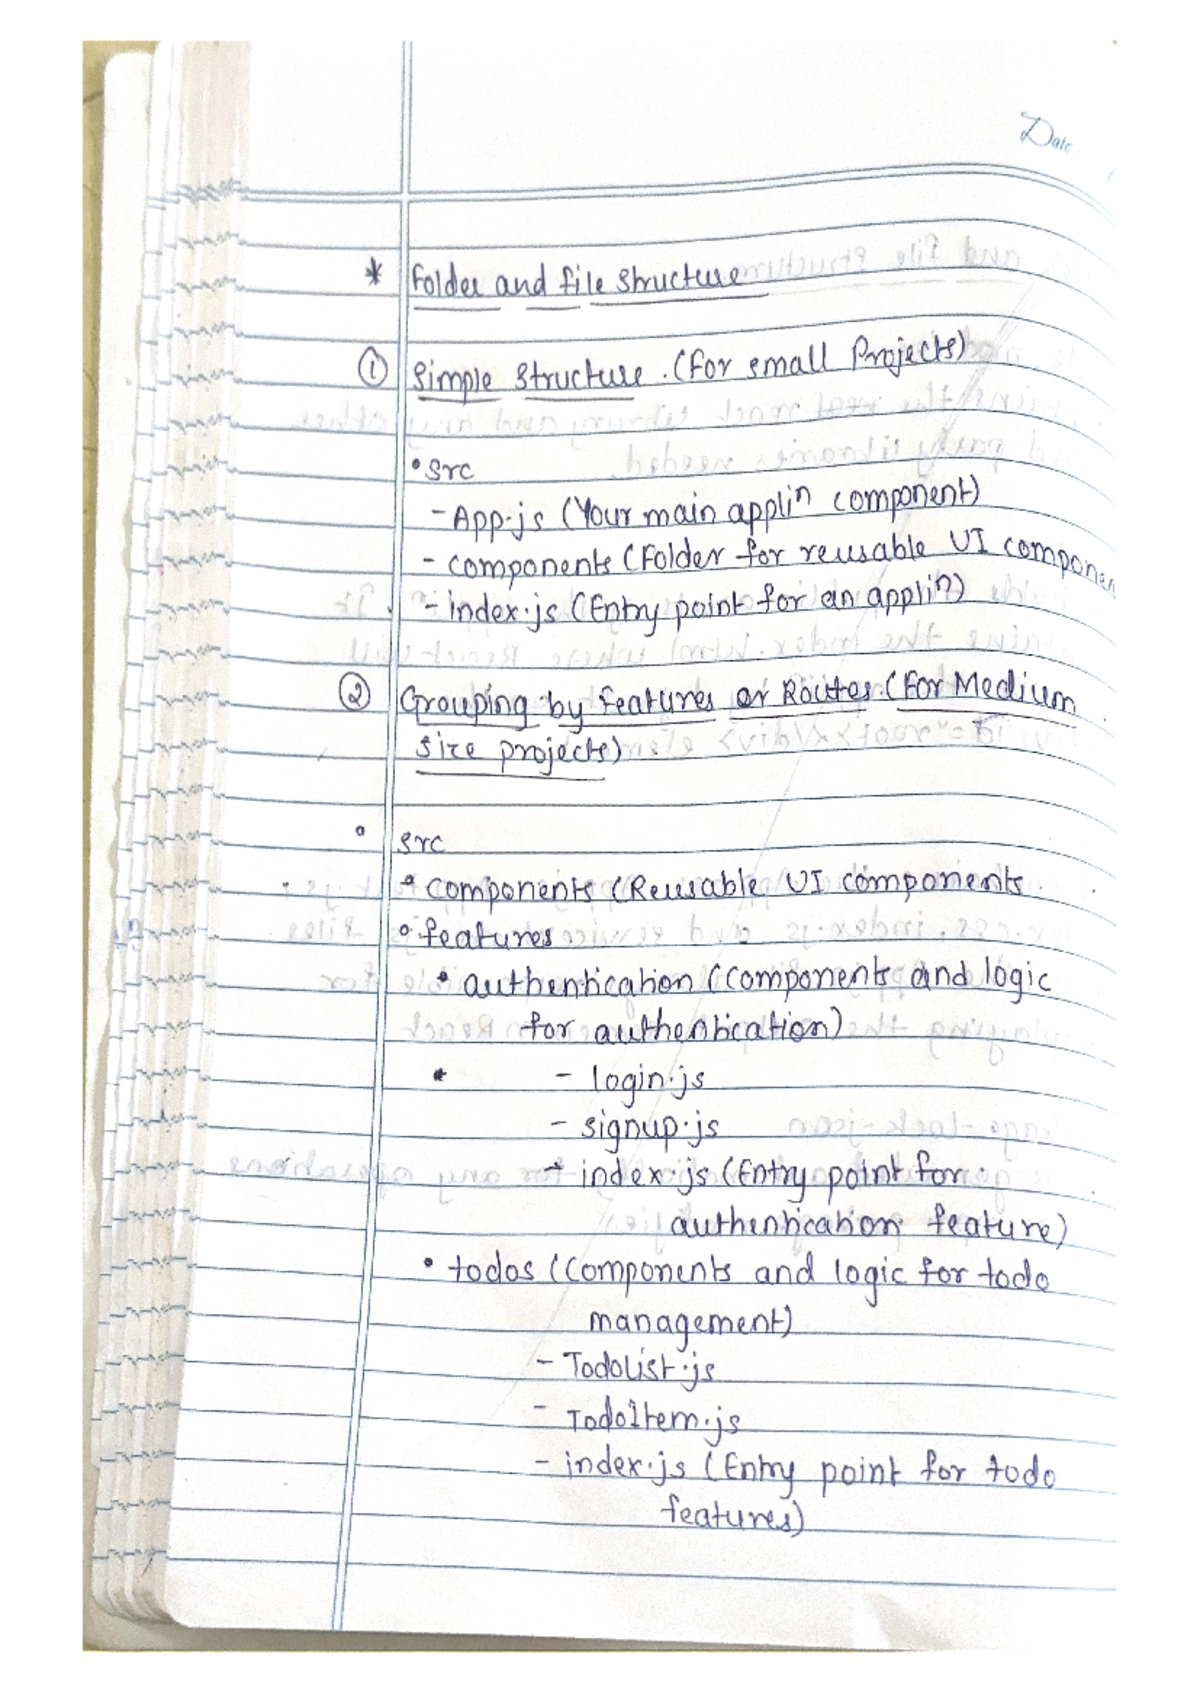 Date
* Folder and file structure
① Simple structure. (For small Projects)
• src
- App.js (Your main appliⁿ component)
- components (Folder for reusable UI componen
- index.js (Entry point for an appliⁿ)
② Grouping by features or Routes. (For Medium
size projects)
° src
• components (Reusable UI components
• features
• authentication (Components and logic
for authentication)
• - login.js
- signup.js
- index.js (Entry point for
authentication feature)
• todos (Components and logic for todo
management)
- TodoList.js
- TodoItem.js
- index.js (Entry point for todo
features)